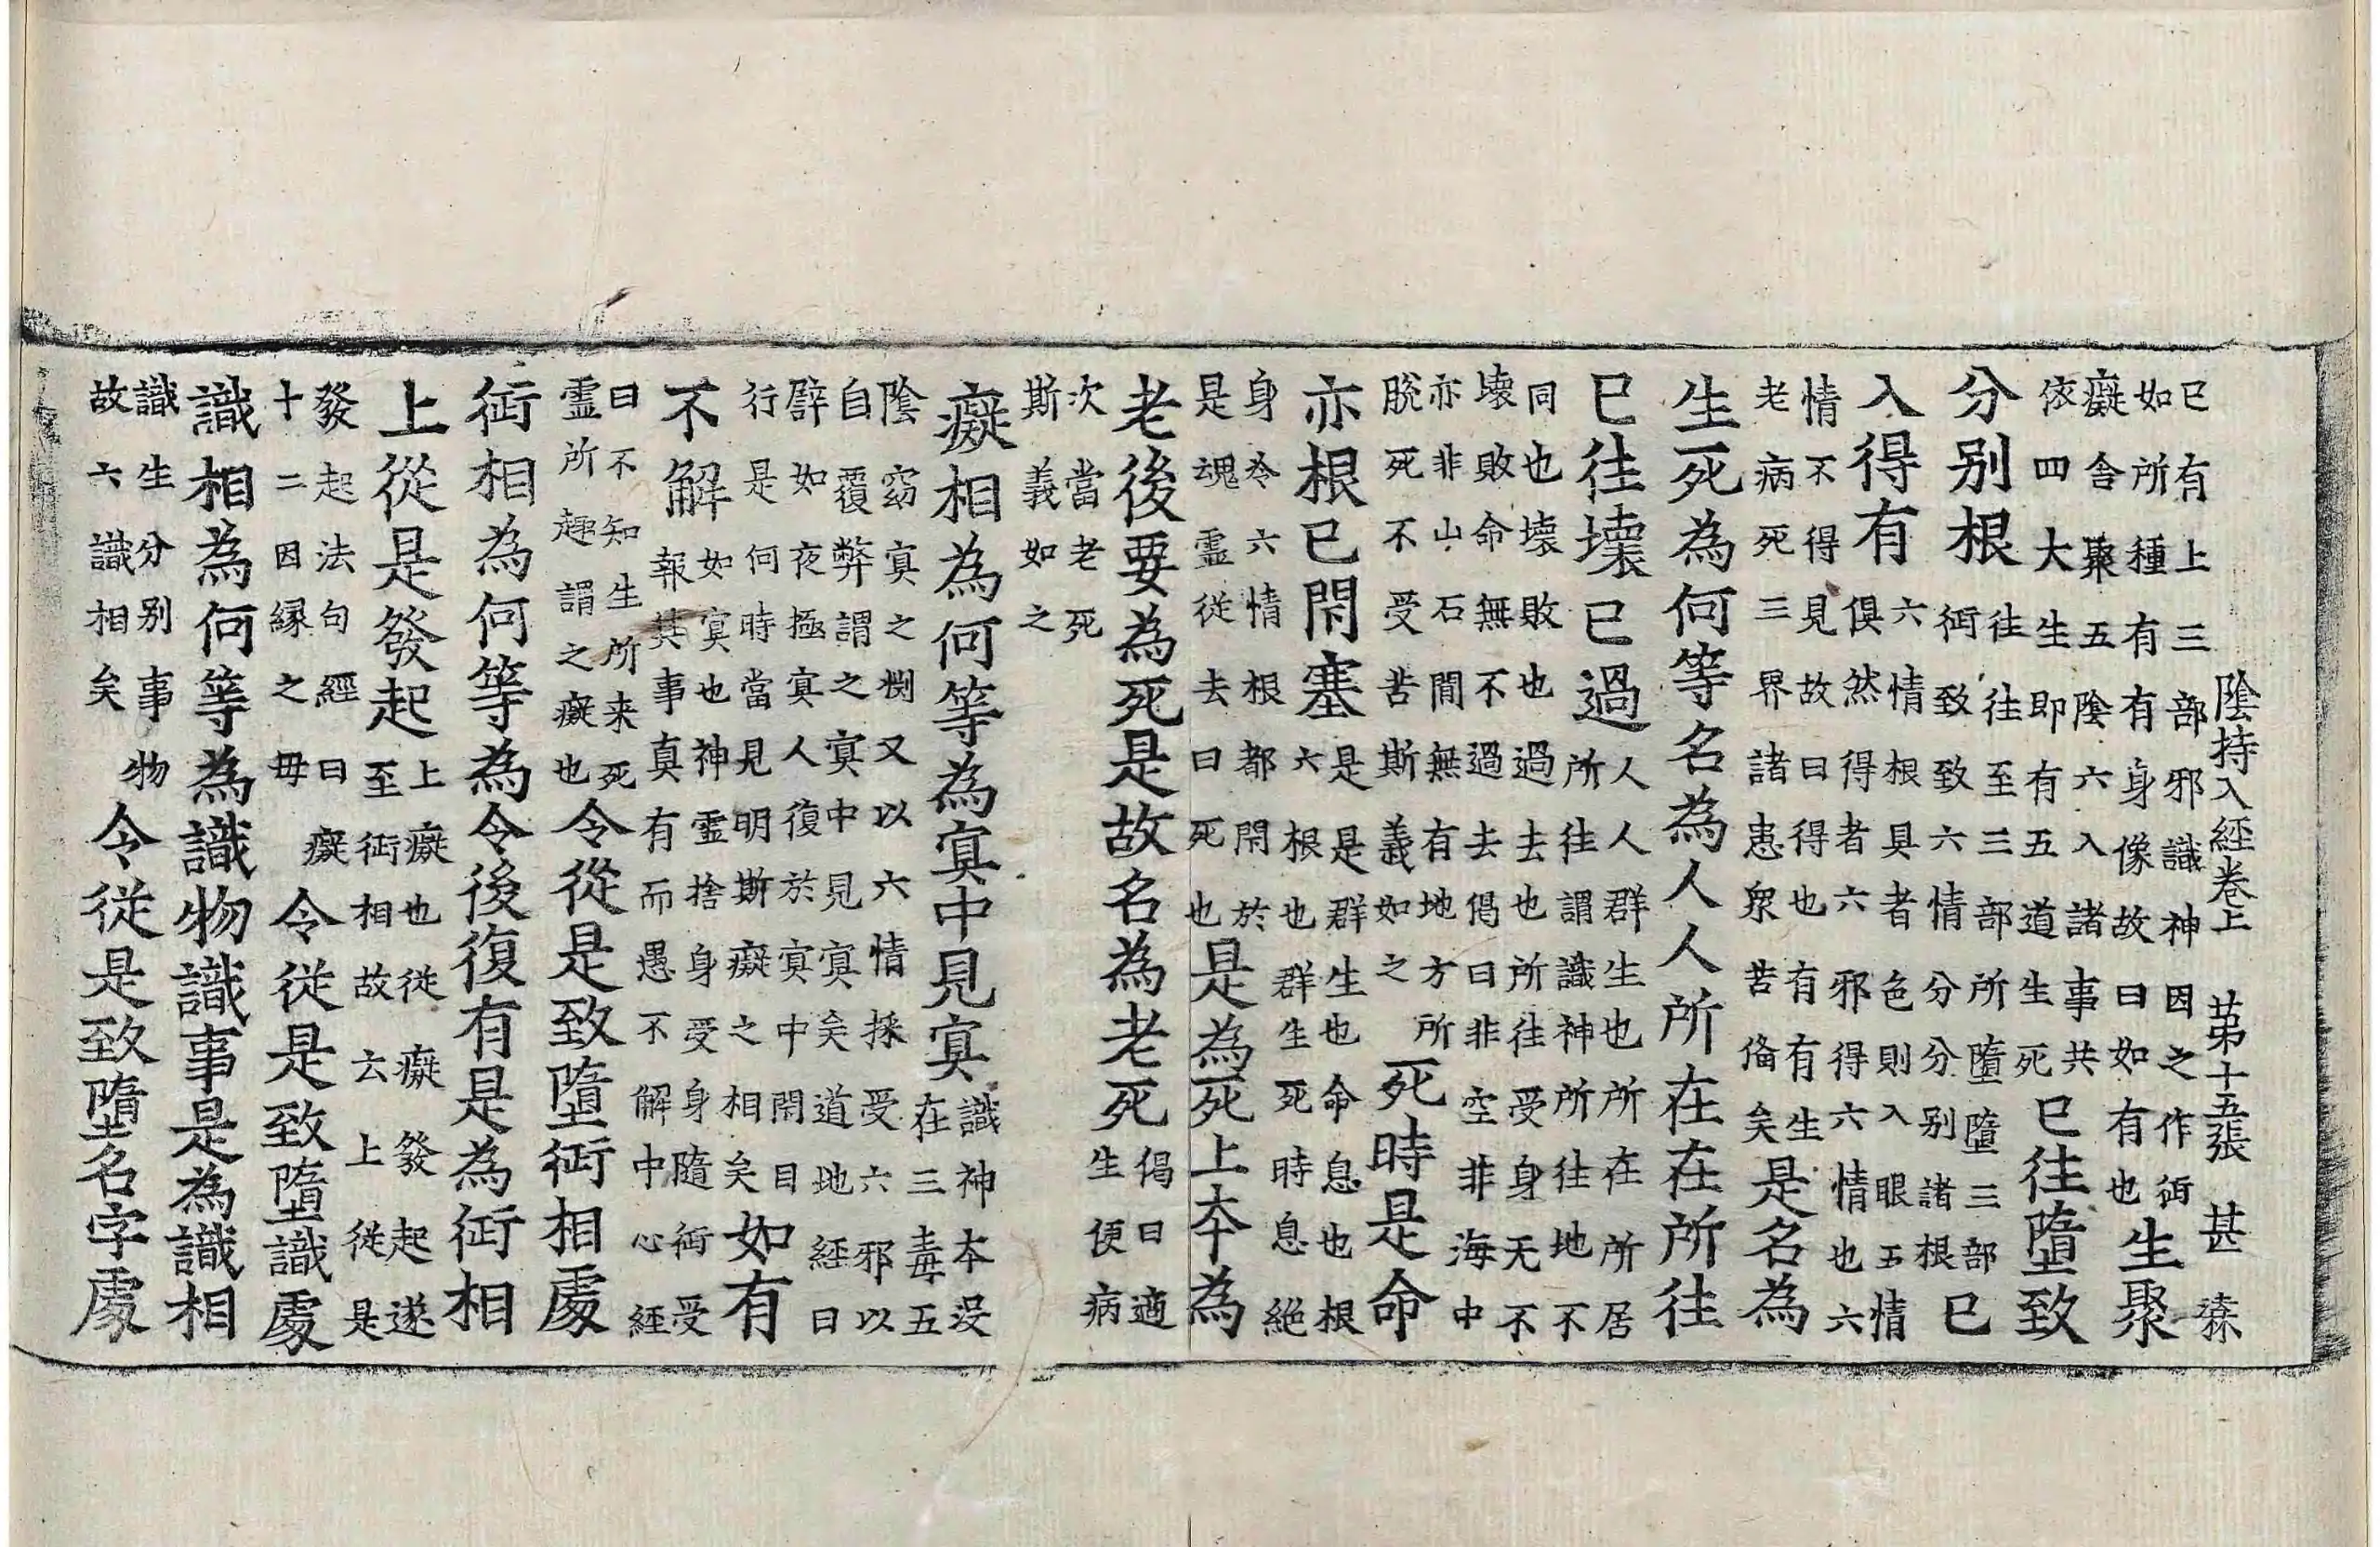 陰持入經卷上 苐十五張 甚
已有上三部邪識神因之作行如所種有有身像故曰如有也生聚
癡舎聚五陰六入諸事共依四大生即有五道生死已往墮致
分别根往往至三部所墮墮三部行致致六情分分别諸根已
入得有六情根具者色則入眼五情俱然得者六邪得六情也六
情不得見故曰得也有有生老病死三界諸患衆苦俻矣是名為
生死為何等名為人人所在在所往
已往壊已過人人群生也所在所居所往謂識神所往地不
同也壊敗也過去也所往受身无不壊敗命無不過去偈曰非空非海中
亦非山石間無有地方所脫死不受苦斯義如之死時是命
亦根已閇塞是是群生也命息也根六根也群生死時息絶
身冷六情根都閇於是魂霊從去曰死也是為死上夲為
老後要為死是故名為老死偈曰適生便病
次當老死斯義如之
癡相為何等為冥中見冥識神夲沒在三毒五
陰窈冥之又以六情採受六邪以自覆弊謂之冥中見冥矣道地經曰
譬如夜極冥人復於冥中閇目行是何時當見明斯癡之相矣如有
不解如冥也神霊捨身受身隨行受報其事真有而愚不解中心經
曰不知生所来死霊所趣謂之癡也令從是致墮行相處
行相為何等為令後復有是為行相
上從是發起上癡也從癡發起遂至行相故云上從是
發起法句經曰癡十二因縁之毋令從是致墮識處
識相為何等為識物識事是為識相
識生分别事物故六識相矣令從是致墮名字處